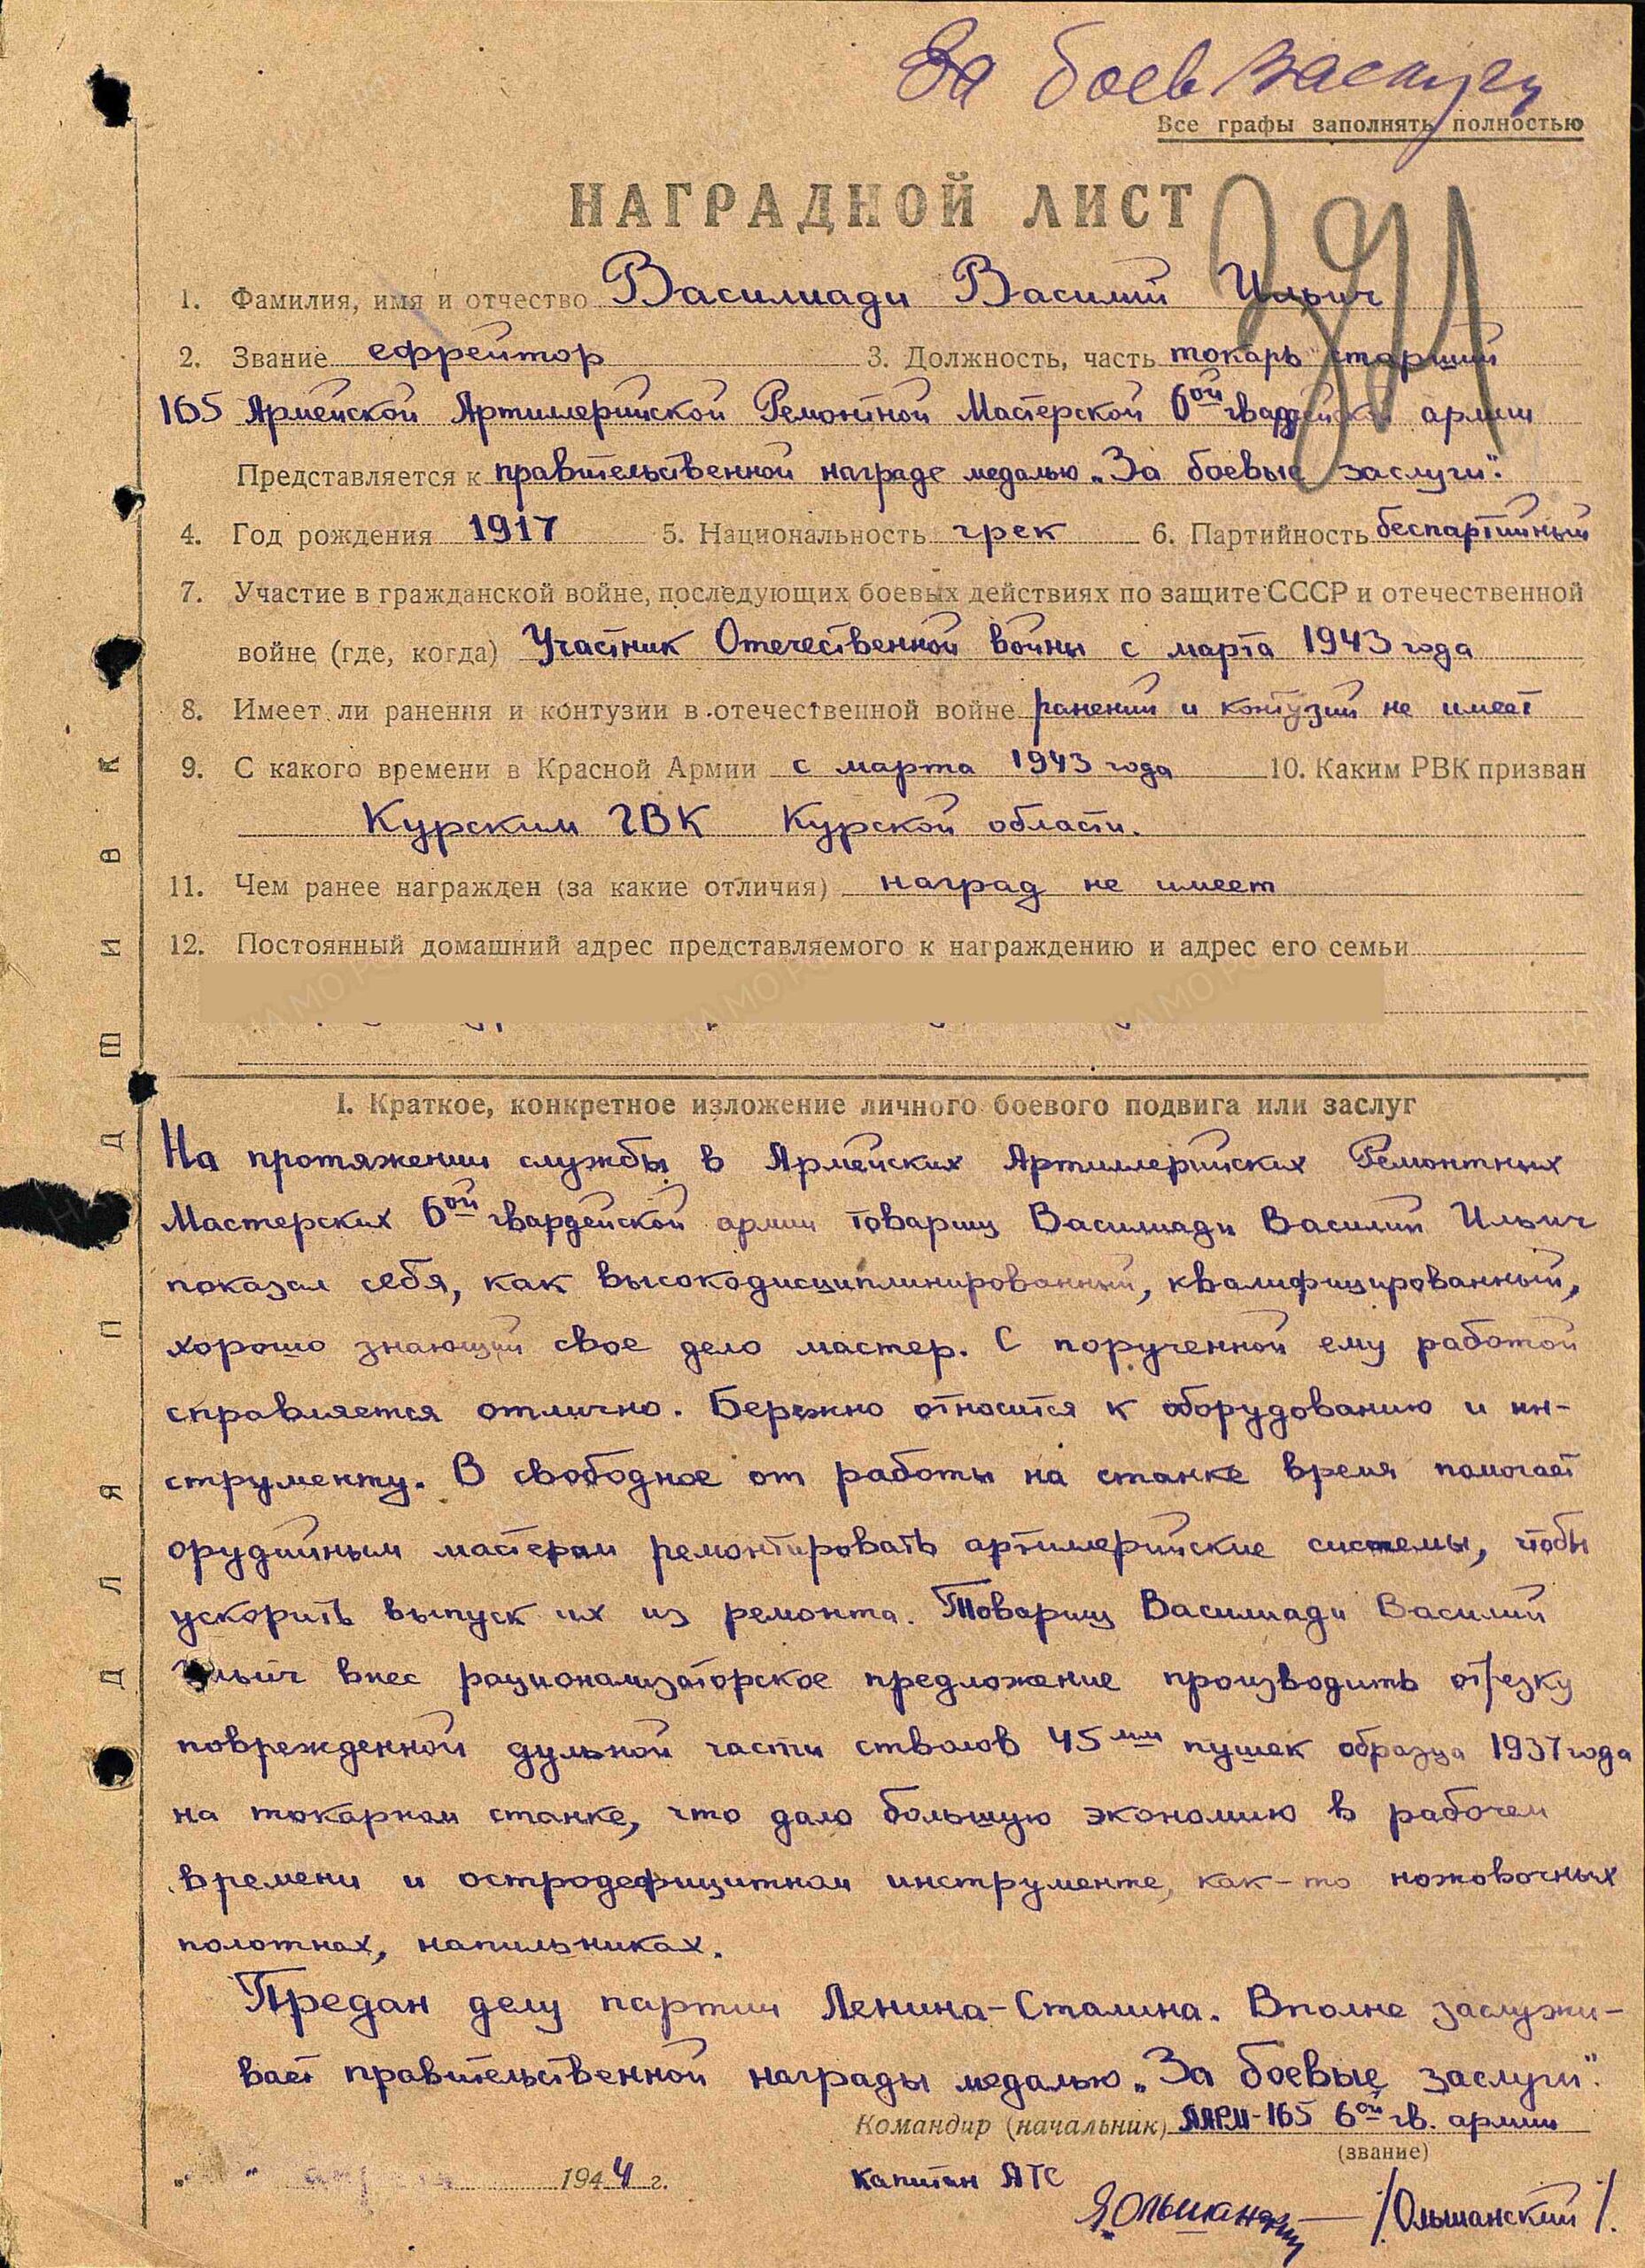 За боев заслуги
Все графы заполнять полностью
НАГРАДНОЙ ЛИСТ
1. Фамилия, имя и отчество Василиади Василий Ильич
2. Звание ефрейтор 3. Должность, часть токарь старший
165 Армейской Артиллерийской Ремонтной Мастерской 6ой гвардейской армии
Представляется к правительственной награде медалью „За боевые заслуги".
4. Год рождения 1917 5. Национальность грек 6. Партийность беспартийный
7. Участие в гражданской войне, последующих боевых действиях по защите СССР и отечественной
войне (где, когда) Участник Отечественной войны с марта 1943 года
8. Имеет ли ранения и контузии в отечественной войне ранений и контузий не имеет
9. С какого времени в Красной Армии с марта 1943 года 10. Каким РВК призван
Курским ГВК Курской области.
11. Чем ранее награжден (за какие отличия) наград не имеет
12. Постоянный домашний адрес представляемого к награждению и адрес его семьи
I. Краткое, конкретное изложение личного боевого подвига или заслуг
На протяжении службы в Армейских Артиллерийских Ремонтных
Мастерских 6ой гвардейской армии товарищ Василиади Василий Ильич
показал себя, как высокодисциплинированный, квалифицированный,
хорошо знающий свое дело мастер. С порученной ему работой
справляется отлично. Бережно относится к оборудованию и ин-
струменту. В свободное от работы на станке время помогает
орудийным мастерам ремонтировать артиллерийские системы, чтобы
ускорить выпуск их из ремонта. Товарищ Василиади Василий
Ильич внес рационализаторское предложение производить отрезку
поврежденной дульной части стволов 45 мм пушек образца 1937 года
на токарном станке, что дало большую экономию в рабочем
времени и остродефицитном инструменте, как-то ножовочных
полотнах, напильниках.
Предан делу партии Ленина-Сталина. Вполне заслужи-
вает правительственной награды медалью „За боевые заслуги".
Командир (начальник) ААРМ-165 6ой гв. армии
(звание)
" " 1944 г. капитан АТС
Ольшанский /Ольшанский/.
ДЛЯ ПОДШИВКИ